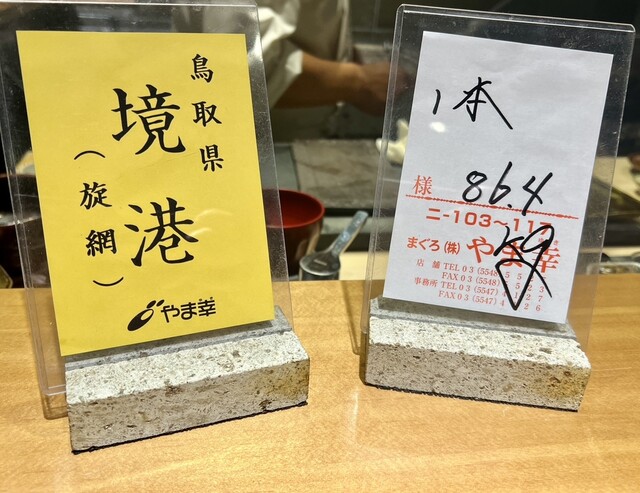 鳥取県
境港
(旋網)
やま幸
1本
様
86.4
ニ-103~117
まぐろ(株)やま幸
店舗 TEL 03(5548)
FAX 03(5548)
事務所 TEL 03(5547)
FAX 03(5547)